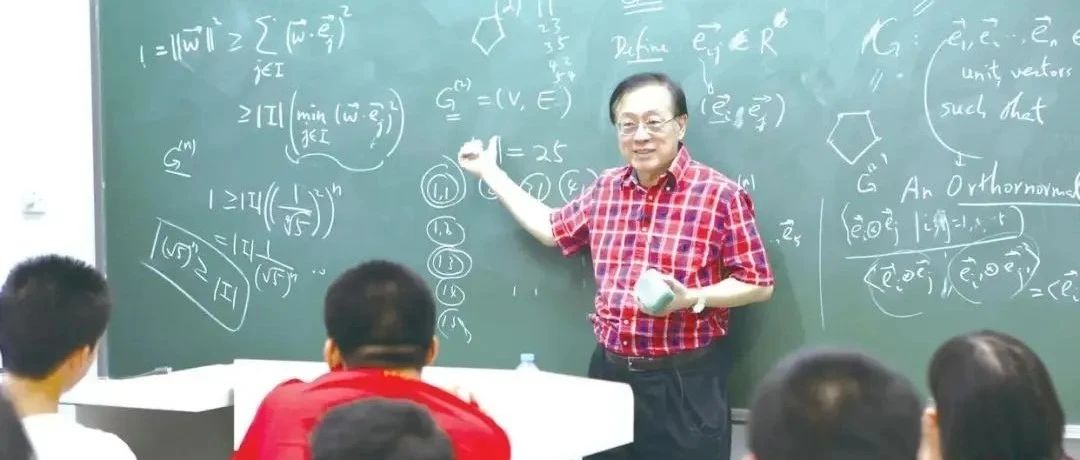 1 = ||w⃗||² ≥ ∑_{j∈I} (w⃗·e⃗_j)²
≥ |I| ( min_{j∈I} (w⃗·e⃗_j)² )
G^{(n)}
1 ≥ |I| ((1/∜5)²)^n
= |I| 1/(√5)^n ..
(√5)^n ≥ |I|
23
35
G^{(2)} = (V, E)
= 25
(1,1)
1,2
1,3
1,4
1,5
Define e⃗_{ij} ∈ R
(e⃗_i, e⃗_j)
.., e⃗_5
G : e⃗_1, e⃗_i ..., e⃗_n
unit vectors
such that
G^{(n)} An Orthornormal
(e⃗_i ⊗ e⃗_j | i,j=1,..5)
<e⃗_i ⊗ e⃗_j, e⃗_i' ⊗ e⃗_j'> = <e⃗